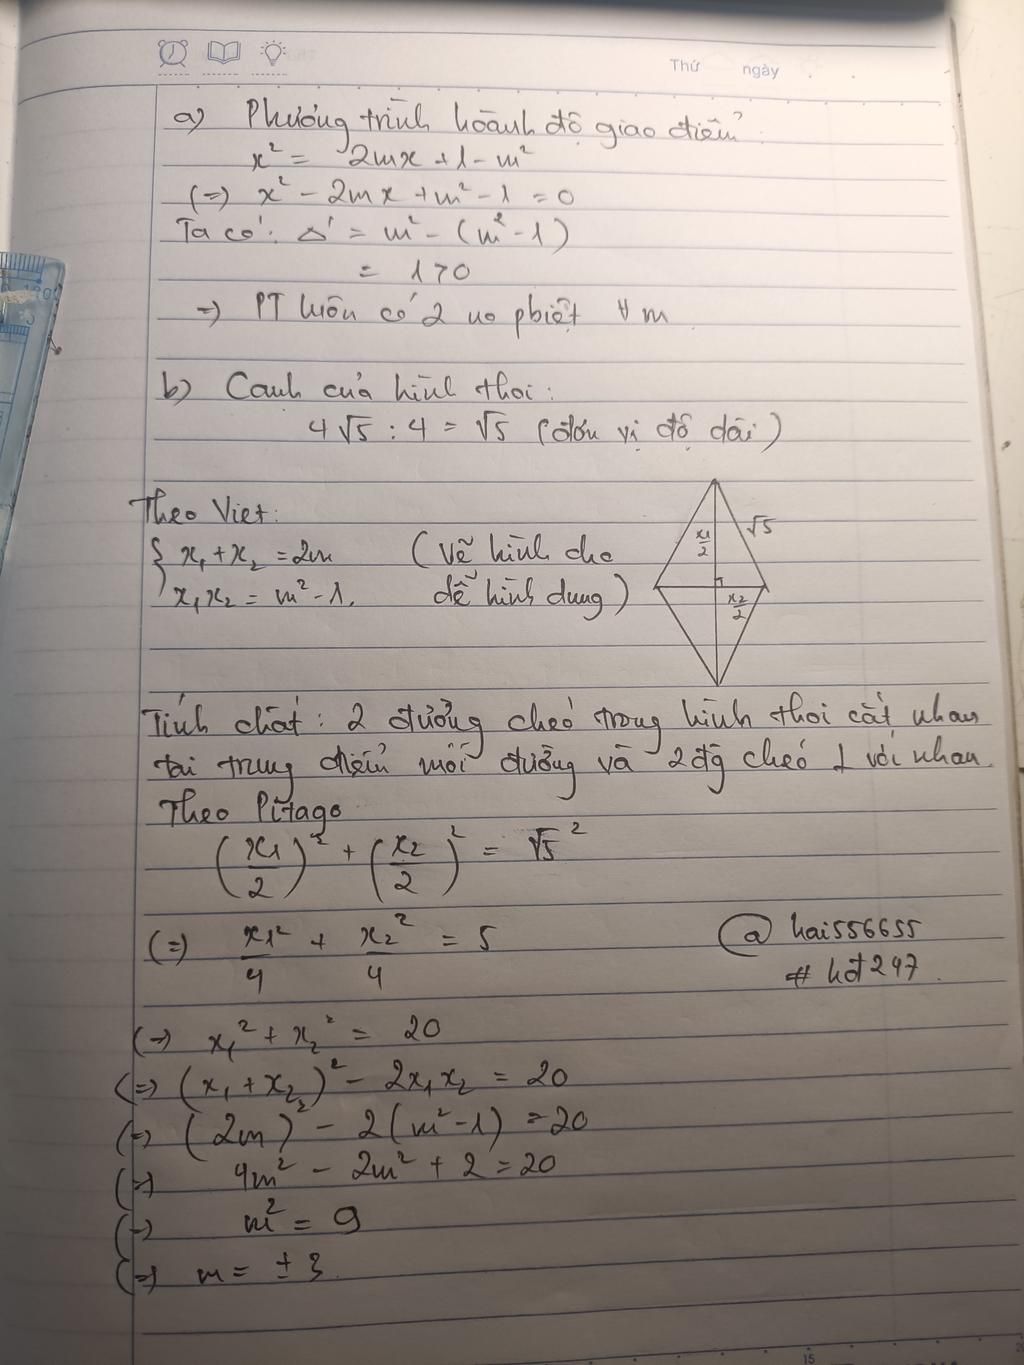 Thứ ngày
a) Phương trình hoành độ giao điểm:
x² = 2mx + 1 - m²
(=) x² - 2mx + m² - 1 = 0
Ta có: Δ' = m² - (m² - 1)
= 1 > 0
=) PT luôn có 2 no pbiệt ∀m
b) Canh của hình thoi:
4√5 : 4 = √5 (đơn vị độ dài)
Theo Viet:
{ x₁ + x₂ = 2m (vẽ hình cho
x₁x₂ = m² - 1. dễ hình dung)
x1/2 √5
x2/2
Tính chất: 2 đường chéo trong hình thoi cắt nhau
tại trung điểm mỗi đường và 2 đg chéo ⊥ với nhau.
Theo Pitago
(x1/2)² + (x2/2)² = √5²
(=) x1²/4 + x2²/4 = 5
@ hai556655
# hđ247
(=) x₁² + x₂² = 20
(=) (x₁ + x₂)² - 2x₁x₂ = 20
(=) (2m)² - 2(m² - 1) = 20
(=) 4m² - 2m² + 2 = 20
(=) m² = 9
(=) m = ± 3
15